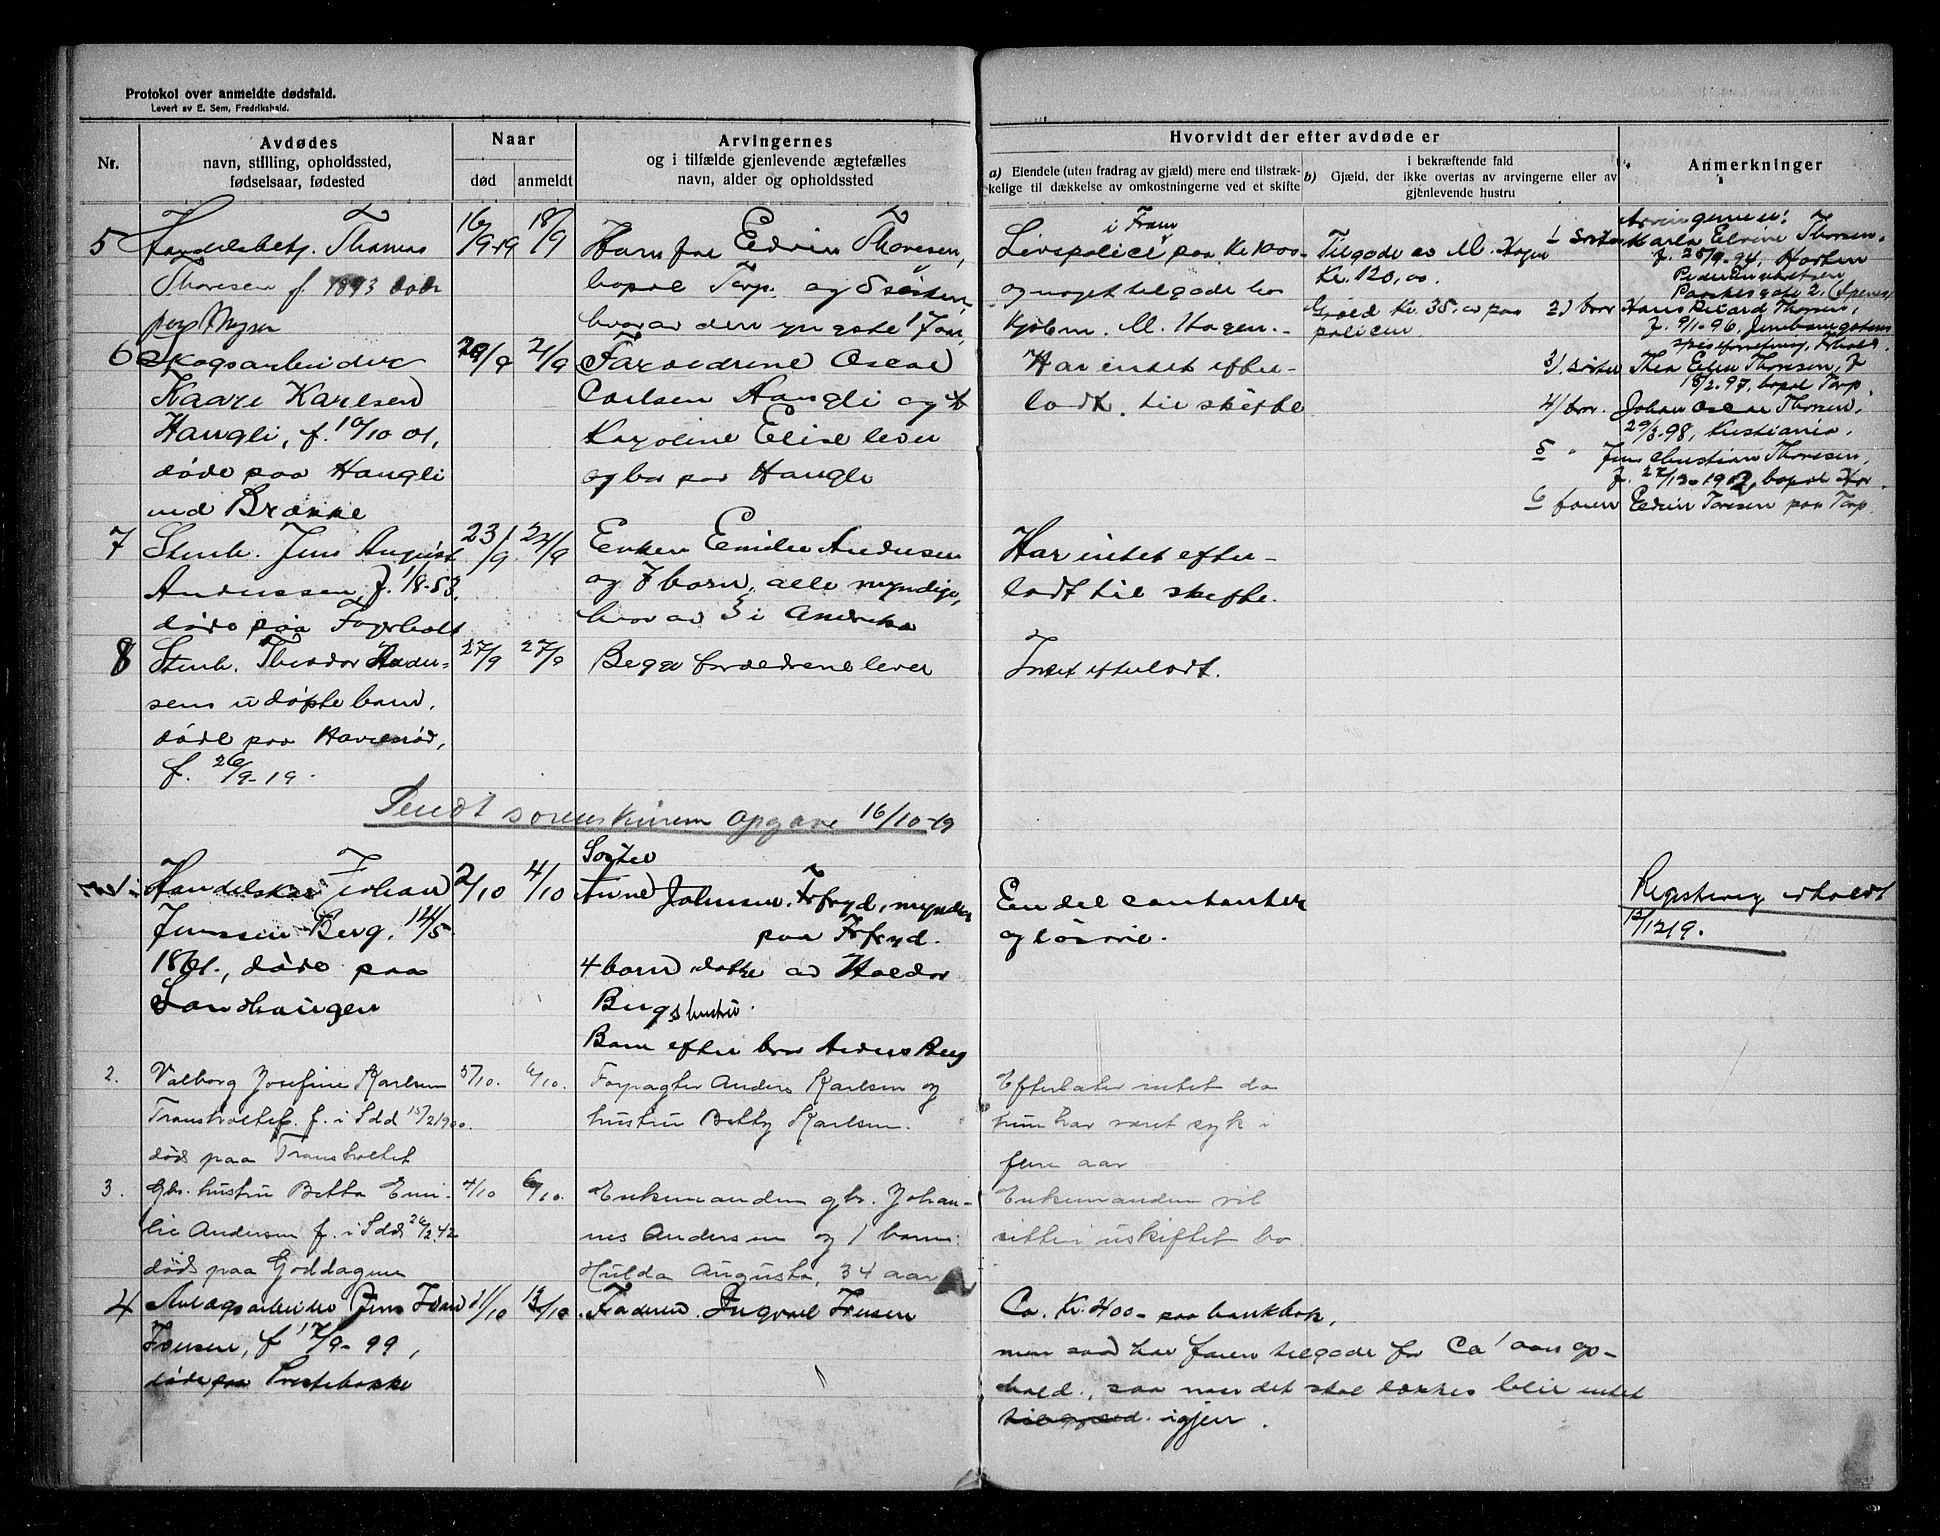 Protokol over anmeldte dødsfald.
Levert av E. Sem, Fredrikshald.
Nr.
Avdødes
navn, stilling, opholdssted,
fødselsaar, fødested
Naar
død
anmeldt
Arvingernes
og i tilfælde gjenlevende ægtefælles
navn, alder og opholdssted
Hvorvidt der efter avdøde er
a) Eiendele (uten fradrag av gjæld) mere end tilstræk-
kelige til dækkelse av omkostningerne ved et skifte
i bekræftende fald
b) Gjæld, der ikke overtas av arvingerne eller av
gjenlevende hustru
Anmerkninger
5
Handelsbetj. Thomas
Thoresen f. 1893 døde
paa Mysen
16/9-19
18/9
Har far Edvin Thoresen,
bopæl Torp. og 5 søsken,
hvorav den yngste 17 aar,
Livspolice i Fram paa Kr 1000-
og noget tilgode hos
Kjøbm. M. Hagen.-
Tilgode av M. Hagen
Kr. 120,00
Gjæld Kr. 35.00 paa
policen
Arvingerne er:
1 søster Karla Elvine Thoresen,
f. 25/9-94, Horten
gate 2,
2) bror Hans Rikard Thoresen,
f. 9/1-96, Jernbanegatens
spiseforretning, Fr.hald.
3/. søster Thea Elen Thoresen, f
18/2.97, bopæl Torp
4/ bror. Johan Oscar Thoresen,
29/3-98, Kristiania.
5 " Jens Christian Thoresen,
6 faren Edvin Toresen paa Torp
6
Skogsarbeider
Kaare Karlsen
Haugli, f. 10/10 01,
døde paa Haugli
ved Brække
20/9
21/9
Forældrene Oscar
Carlsen Haugli og
Karoline Elise lever
og bor paa Haugli
Har intet efter-
ladt. til skifte
7
Stenh. Jens August
Anderssen, f. 1/8-53.
døde paa Fagerholt
23/9
24/9
Enken Emilie Andersen
og 7 barn, alle myndige,
hvorav 3 i Amerika
Har intet efter-
ladt til skifte.
8
Stenh. Theodor Ander-
sens udøpte barn,
døde paa
f. 26/9-19.
27/9
27/9
Begge forældrene lever
Intet efterladt.
Sendt sorenskriveren opgave 16/10-19
1
Handelskar Johan
Jenssen Berg, 14/5
1861., døde paa
Sandhaugen
2/10
4/10
Søster
Anne Johnsen. Isfryd, myndig
paa Isfryd.
4 barn døtre av Haldor
Bergs hustru.
Barn efter bror Anders Berg
En del contanter
og løsøre.
Registrering avholdt
12/12 19.
2.
Valborg Josefine Karlsen
Transholtet. f. i Idd 15/2 1900.
død paa Transholtet
5/10.
6/10.
Forpagter Anders Karlsen og
hustru Betty Karlsen.
Efterlater intet da
hun har været syk i
flere aar
3.
Gbr. hustru Betta Emi-
lie Andersen f. i Idd 26/2.42
død paa Goddagen
4/10
6/10.
Enkemanden gbr. Johan-
nes Andersen og 1 barn:
Hulda Augusta, 34 aar
Enkemanden vil
sitte i uskiftet bo
4
Anlægsarbeider Jens Ivar
Iversen, f 17/9-99,
døde paa Prestebakke
11/10
13/10.
Faderen. Ingvald Iversen
Ca. Kr. 400- paa bankbok,
men saa har faren tilgode for Ca 1 aars op-
hold., saa naar det skal dækkes blir intet
igjen.